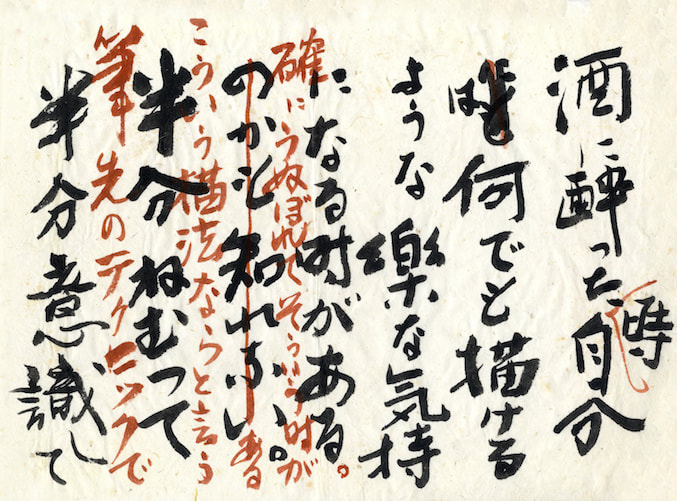 酒に酔った自分
時
は何でも描ける
ような樂な気持
になる時がある。
確にうぬぼれてそういう時が
のかも知れない。
ある
こういう描法ならと言う
半分ねむって
筆先のテクニックで
半分意識して